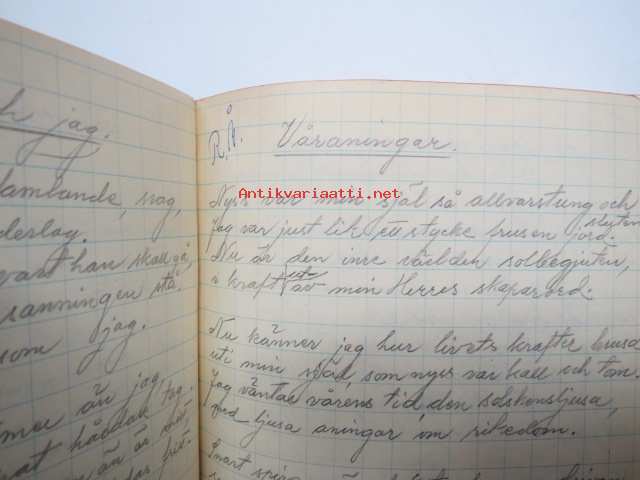 h jag.
samlande, svag,
derlag.
vart han skall gå,
sanningen stå
som jag.
mer än jag,
R.Å.
Våraningar.
Antikvariaatti.net
Nyss var min själ så allvarstung och sluten
Jag var just lik ett stycke frusen jord.
Nu är den inre världen solbegjuten,
i kraft utav min Herres skaparord.
Nu känner jag hur livets krafter brusa
uti min själ, som nyss var kall och tom.
Jag väntar vårens tid den solskensljusa,
med ljusa aningar om rikedom.
Snart